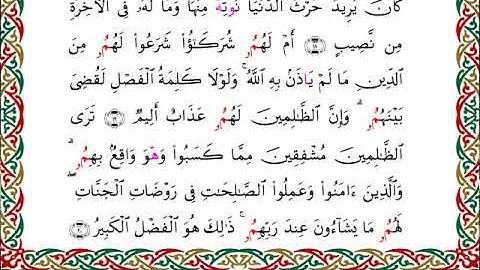 كَانَ يُرِيدُ حَرْثَ ٱلدُّنْيَا نُوتِهِۦ مِنْهَا وَمَا لَهُۥ فِى ٱلْأٓخِرَةِ
مِن نَّصِيبٍ ١٨ أَمْ لَهُمُۥ شُرَكَٰٓؤُاْ شَرَعُواْ لَهُمُۥ مِنَ
ٱلدِّينِ مَا لَمْ يَاذَنۢ بِهِ ٱللَّهُ ۚ وَلَوْلَا كَلِمَةُ ٱلْفَصْلِ لَقُضِىَ
بَيْنَهُمُۥ ۗ وَإِنَّ ٱلظَّٰلِمِينَ لَهُمُۥ عَذَابٌ أَلِيمٌ ١٩ تَرَى
ٱلظَّٰلِمِينَ مُشْفِقِينَ مِمَّا كَسَبُواْ وَهْوَ وَاقِعٌۢ بِهِمُۥ ۗ
وَٱلَّذِينَ ءَامَنُواْ وَعَمِلُواْ ٱلصَّٰلِحَٰتِ فِى رَوْضَاتِ ٱلْجَنَّاتِ ۖ
لَهُمُۥ مَا يَشَآءُونَ عِندَ رَبِّهِمُۥ ۚ ذَٰلِكَ هُوَ ٱلْفَضْلُ ٱلْكَبِيرُ ٢٠